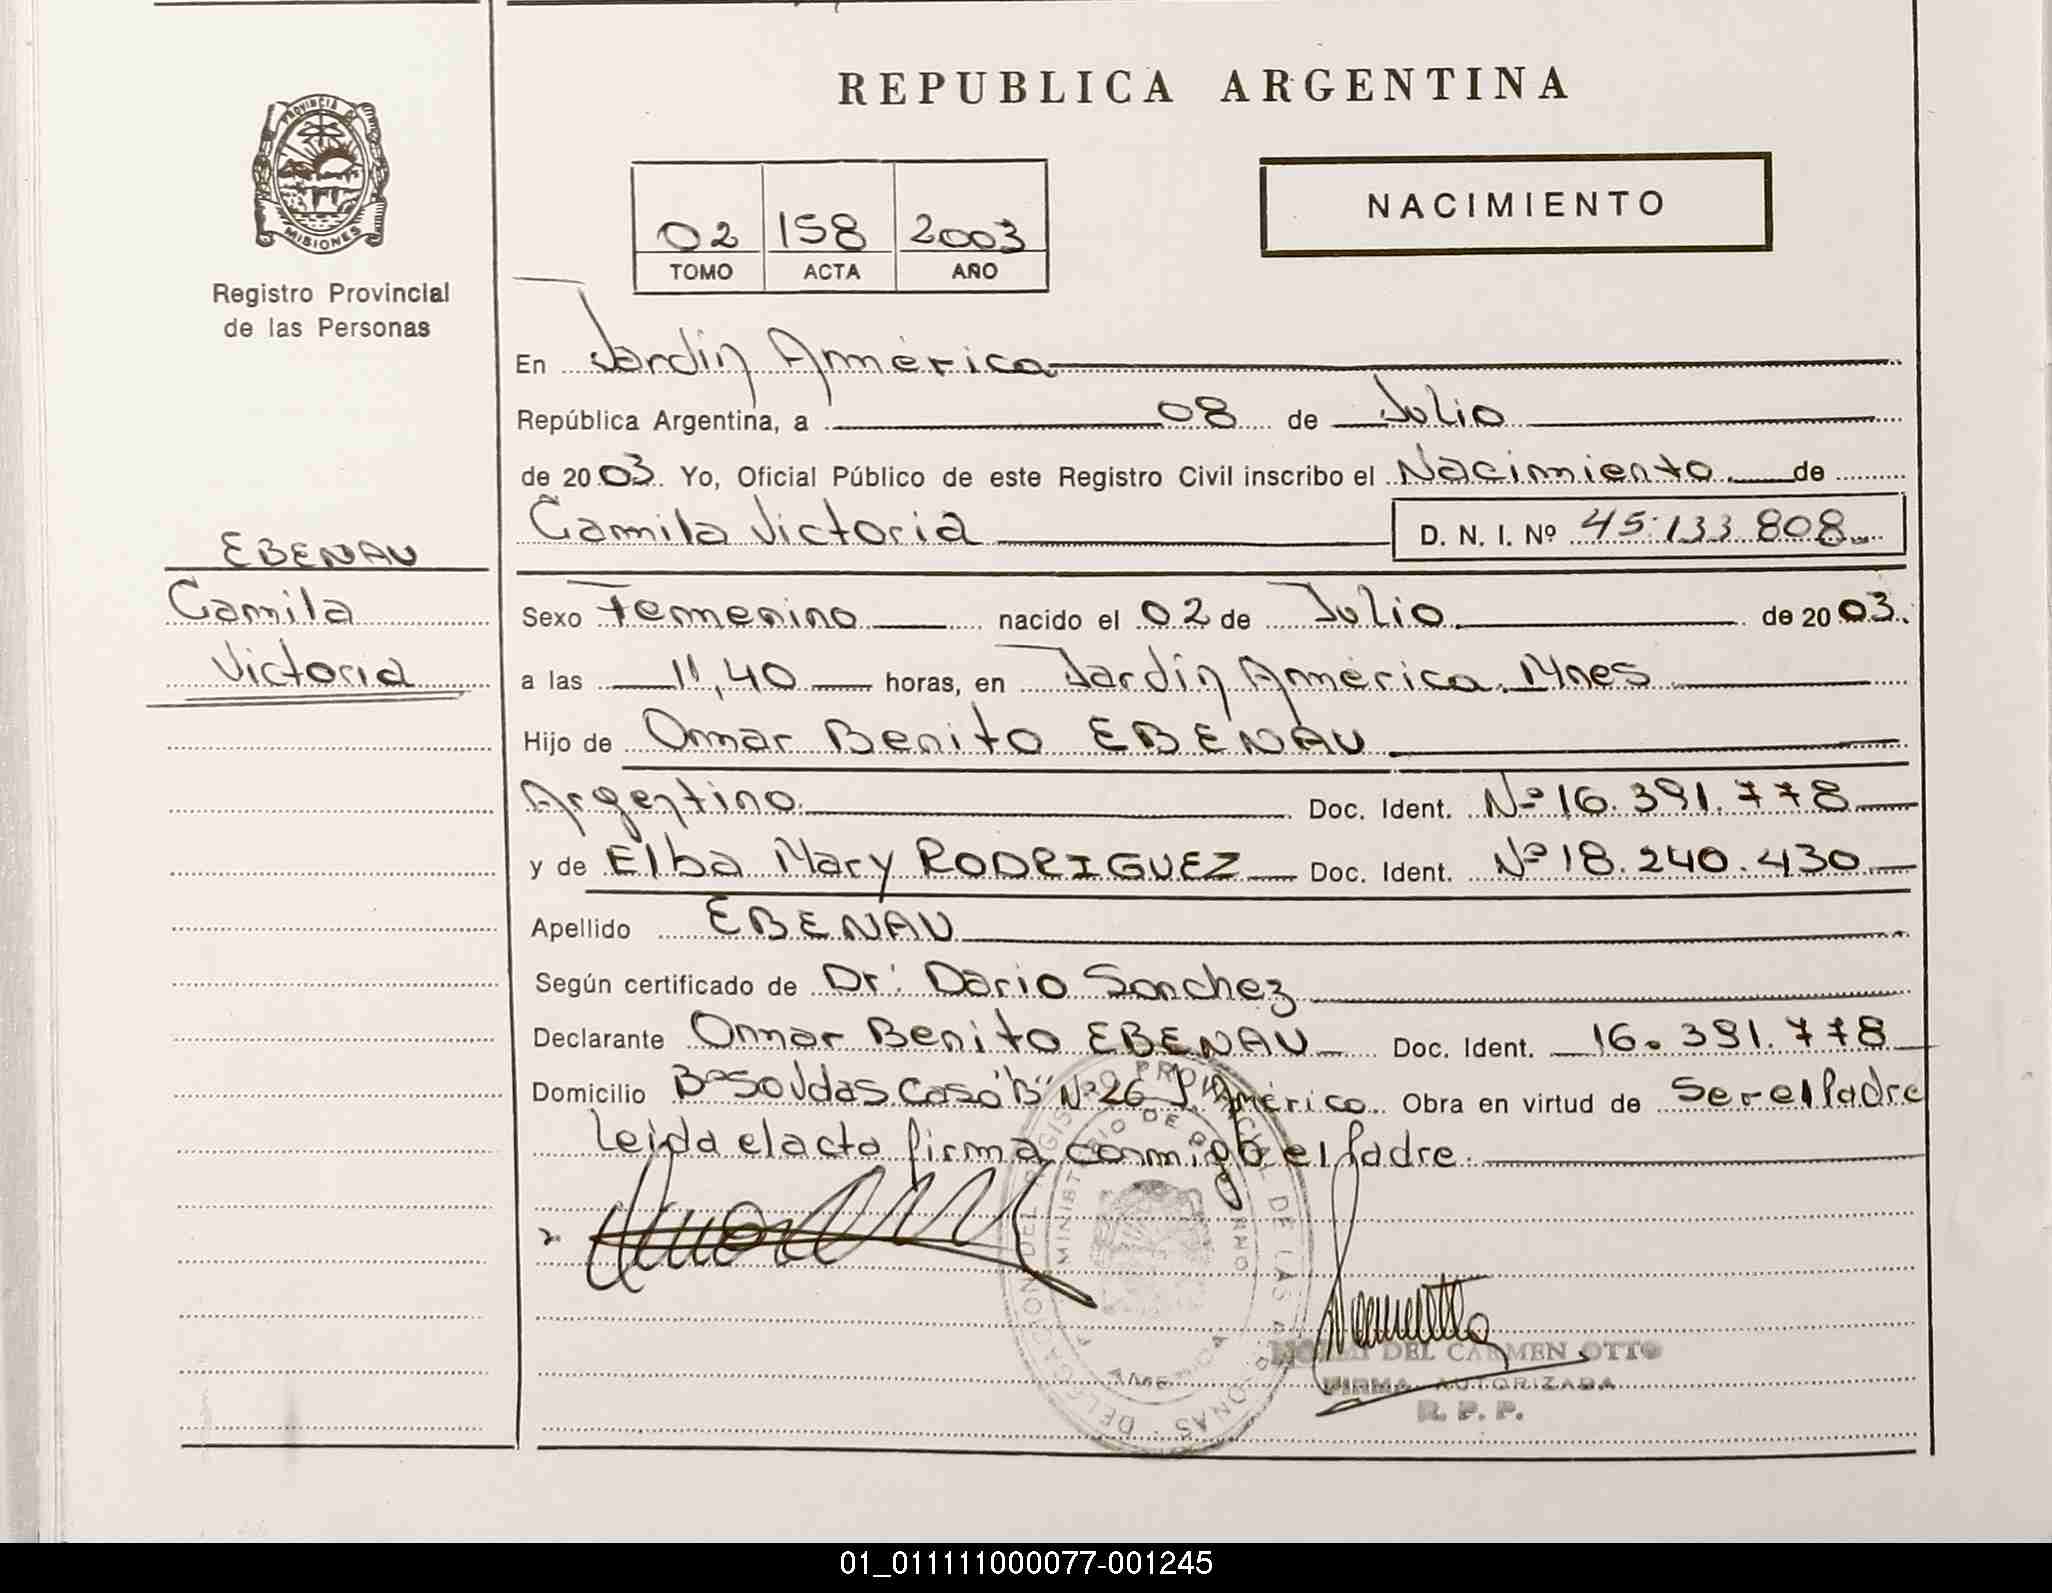 REPUBLICA ARGENTINA
PROVINCIA DE
MISIONES
Registro Provincial
de las Personas
NACIMIENTO
02 158 2003
TOMO ACTA AÑO
En Jardín América
República Argentina, a 08 de Julio
de 2003. Yo, Oficial Público de este Registro Civil inscribo el Nacimiento de
Camila Victoria D. N. I. Nº 45.133.808
EBENAU
Camila
Victoria
Sexo Femenino nacido el 02 de Julio de 2003.
a las 11,40 horas, en Jardín América. Mnes
Hijo de Omar Benito EBENAU
Argentino Doc. Ident. Nº 16.391.778
y de Elba Mary RODRIGUEZ Doc. Ident. Nº 18.240.430
Apellido EBENAU
Según certificado de Dr. Dario Sanchez
Declarante Omar Benito EBENAU Doc. Ident. 16.391.778
Domicilio Bº Nº 26 J. América Obra en virtud de Ser el Padre
Leida el acta firma conmigo el Padre.
DELEGACION DEL REGISTRO PROVINCIAL DE LAS PERSONAS
MINISTERIO DE GOBIERNO
AMERICA
DEL CARMEN OTTO
FIRMA AUTORIZADA
R. P. P.
01_011111000077-001245